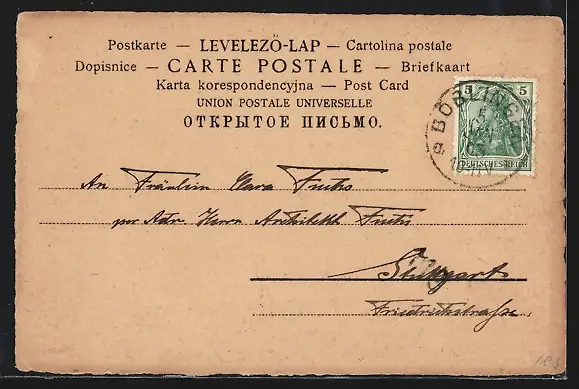 Postkarte — LEVELEZŐ-LAP — Cartolina postale
Dopisnice — CARTE POSTALE — Briefkaart
Karta korespondencyjna — Post Card
UNION POSTALE UNIVERSELLE
ОТКРЫТОЕ ПИСЬМО.
5 5
BÖBLINGEN
DEUTSCHES REICH
An Fräulein Clara Fuchs
pr Adr. Herrn Architekt Fuchs
Stuttgart
Friedrichstrasse